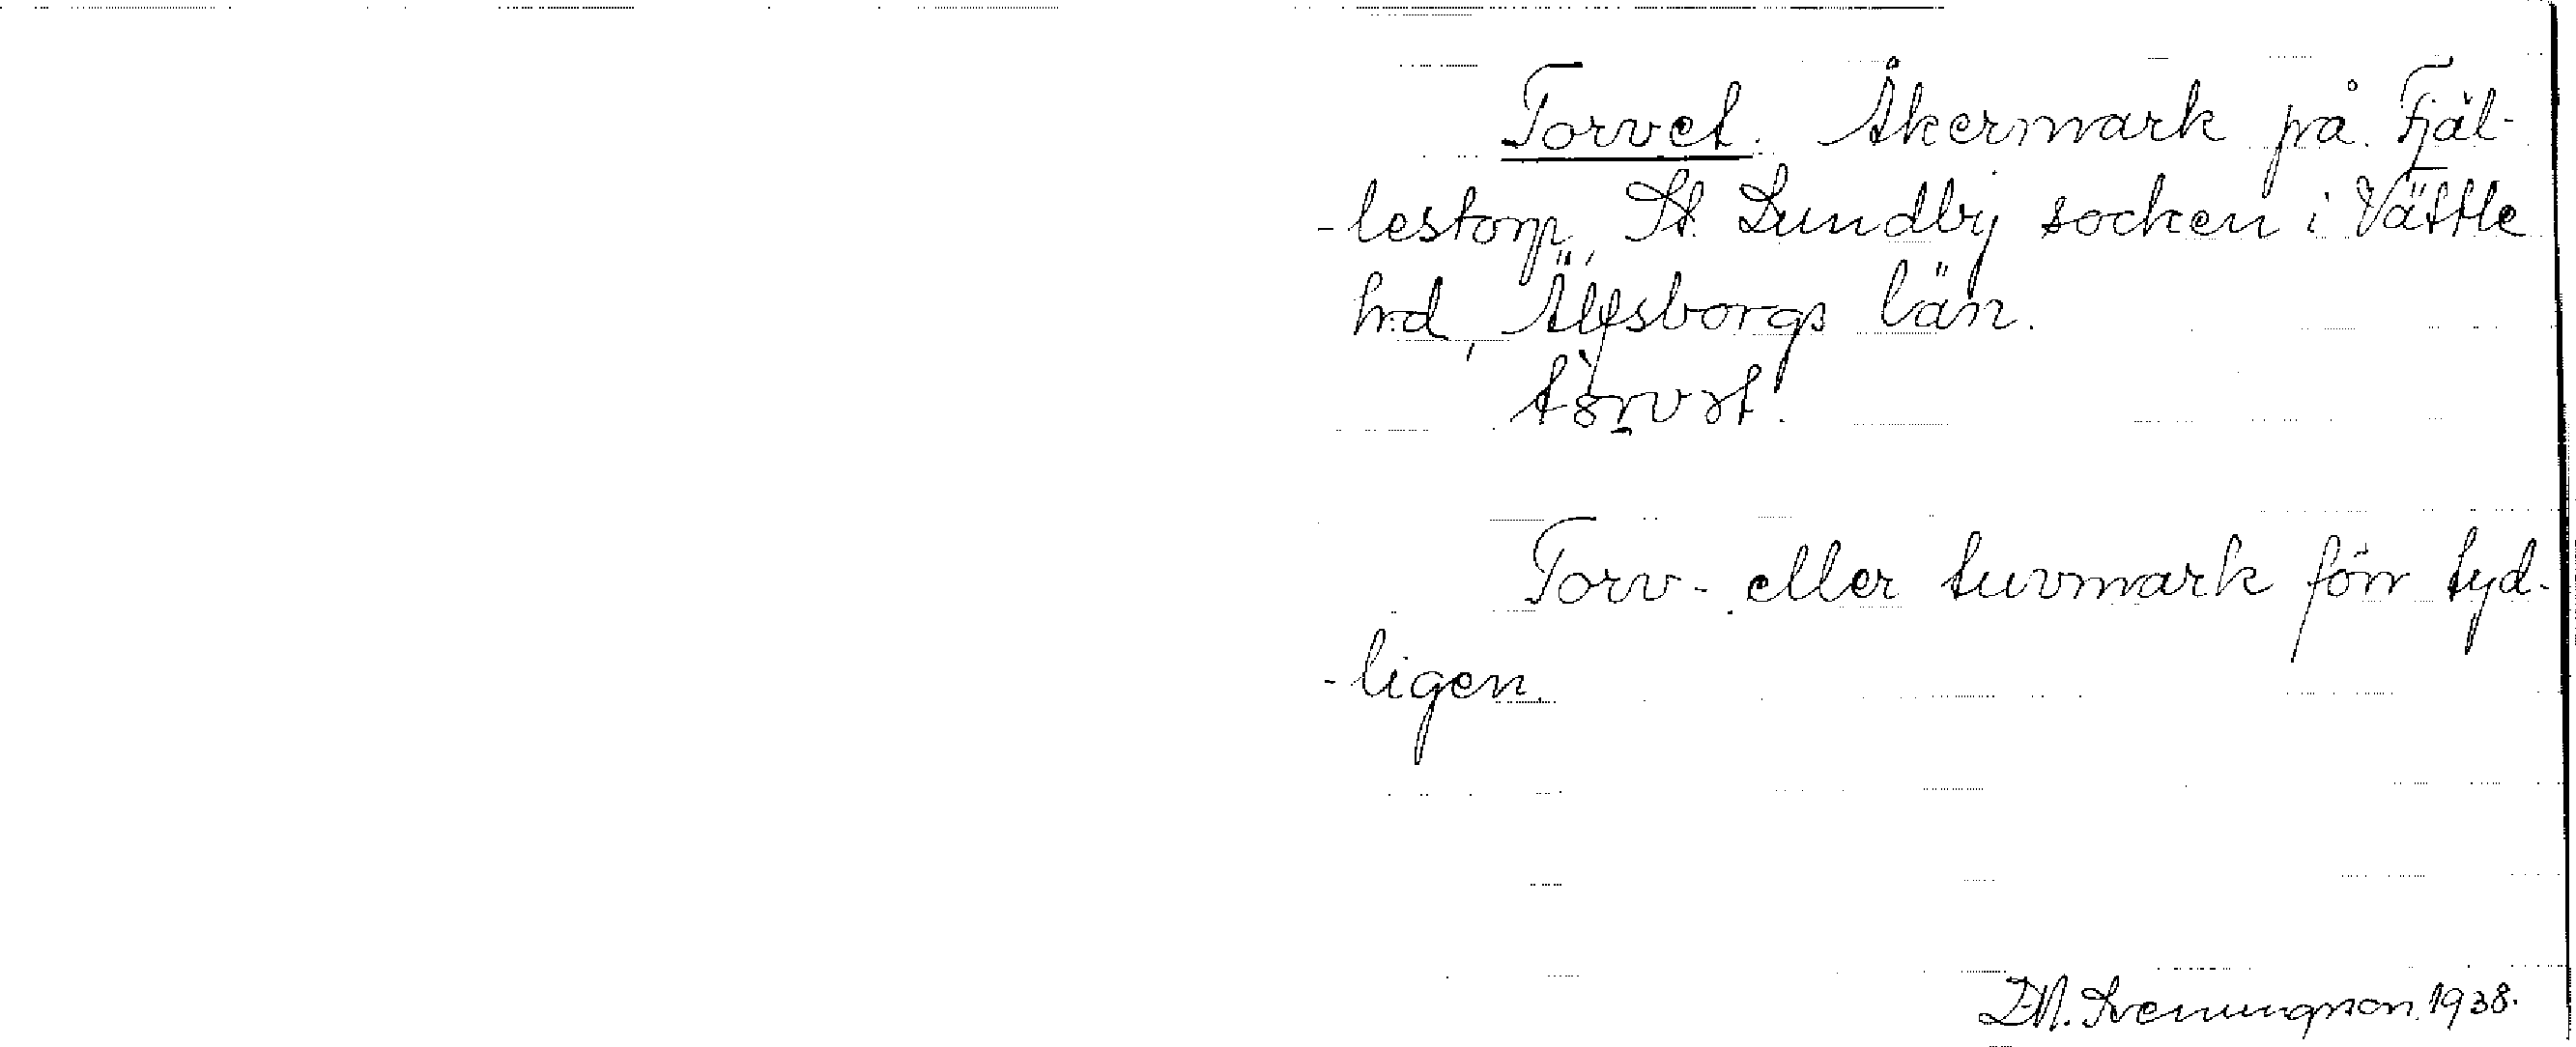 Torvet. Åkermark på Fjäl-
-lestorp, St. Lundby socken i Vättle
hd, Älfsborgs län.
Torv- eller tuvmark förr tyd-
-ligen.
Svenungson 1938.